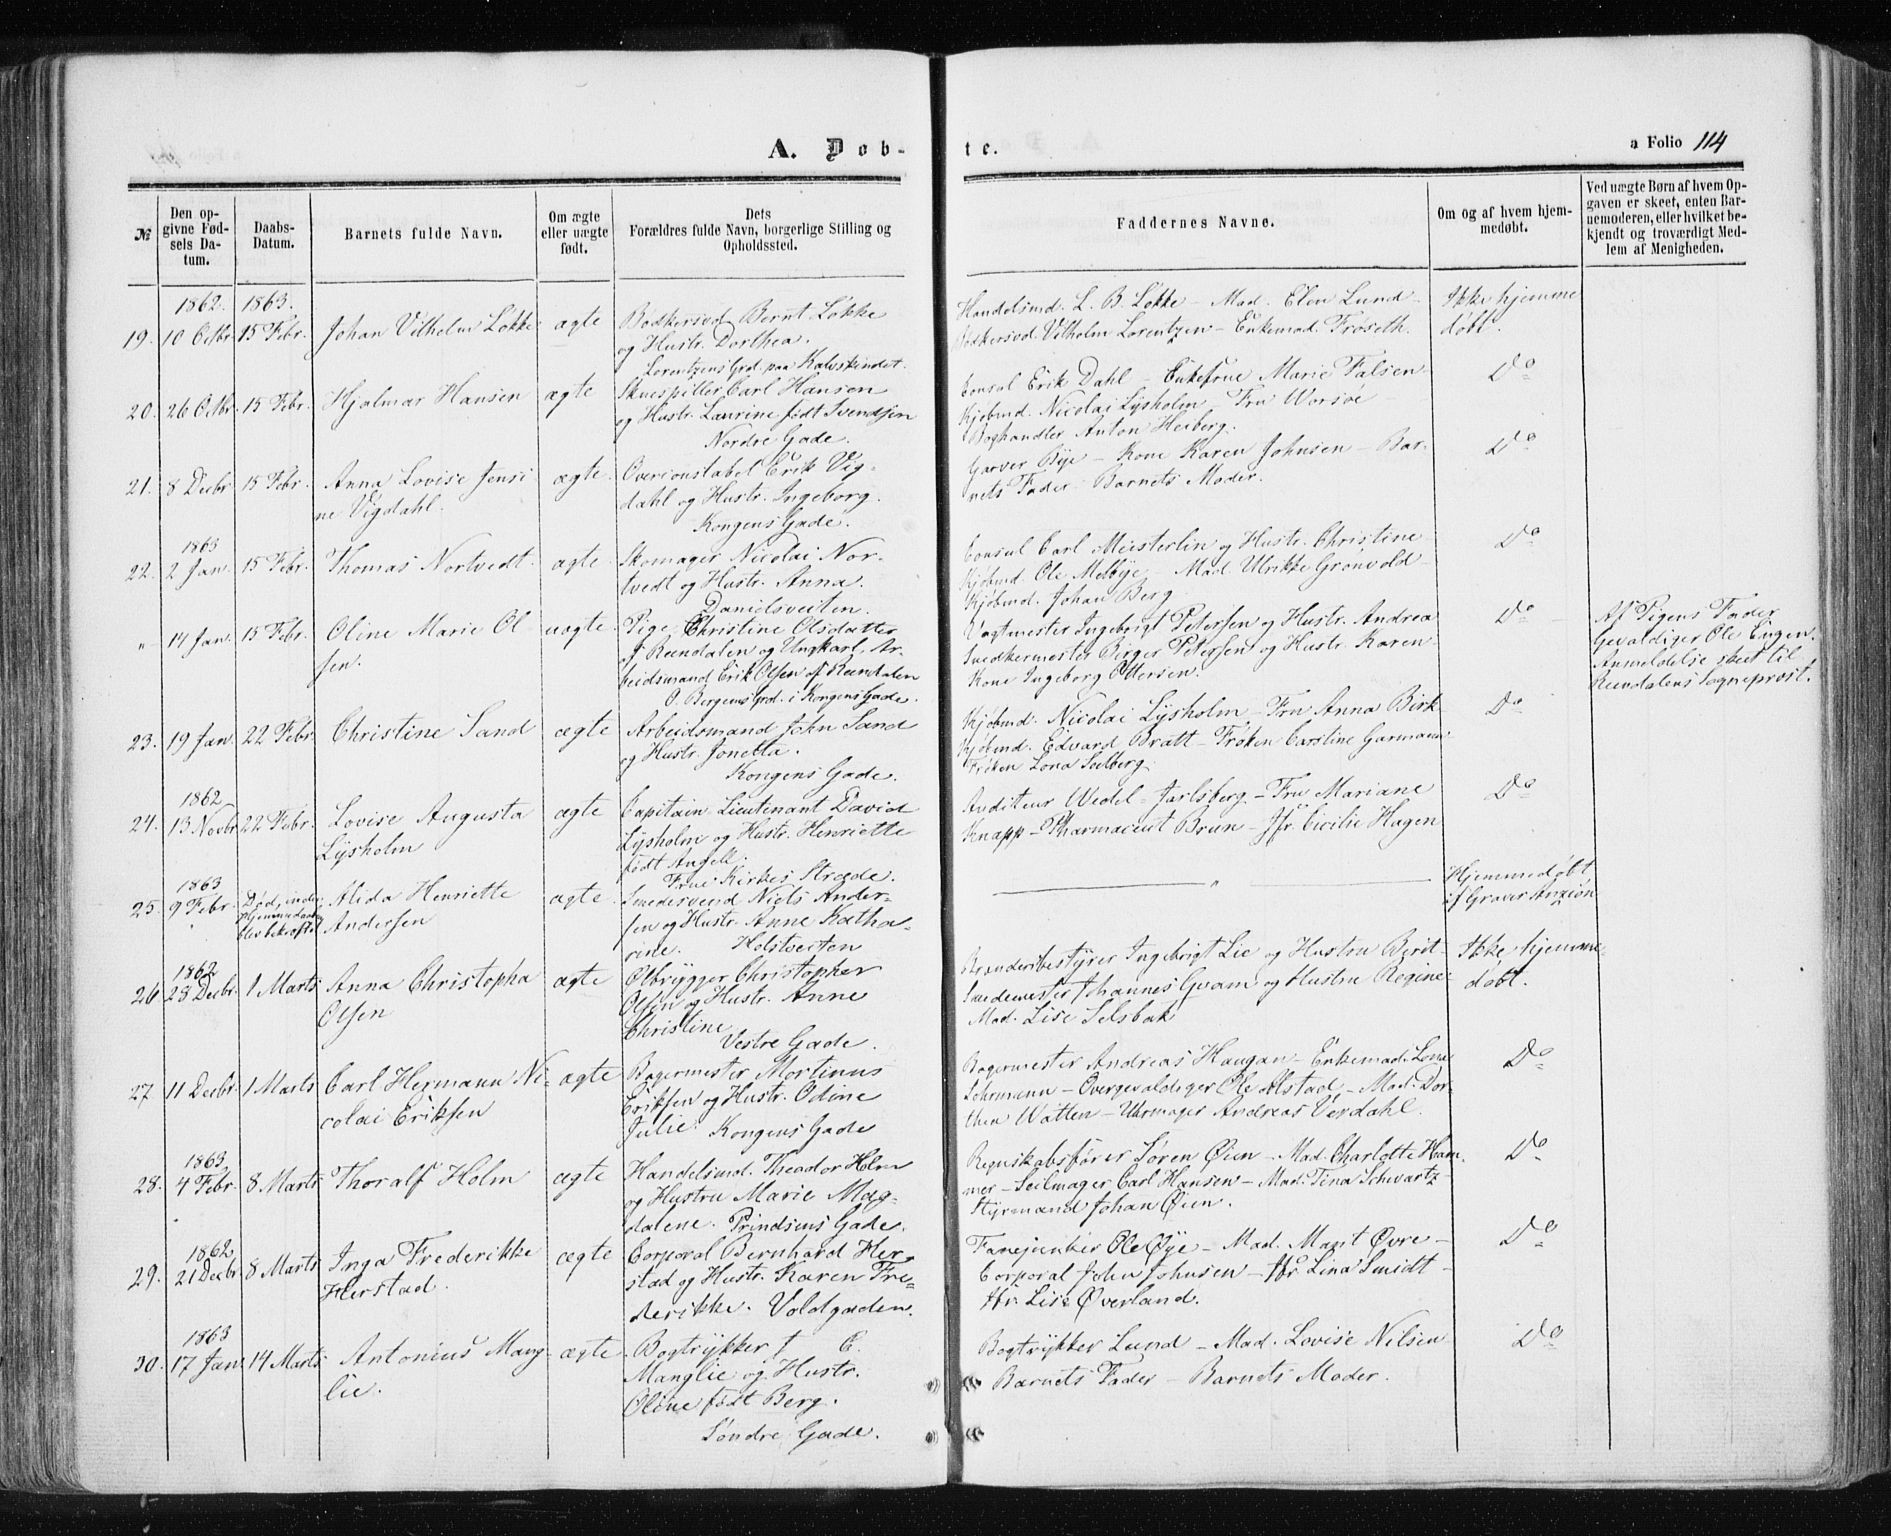 A. Døb-
te.
a Folio 114
№
Den op-
givne Fød-
sels Da-
tum.
Daabs-
Datum.
Barnets fulde Navn.
Om ægte
eller uægte
født.
Dets
Forældres fulde Navn, borgerlige Stilling og
Opholdssted.
Faddernes Navne.
Om og af hvem hjem-
medøbt.
Ved uægte Børn af hvem Op-
gaven er skeet, enten Bar-
nemoderen, eller hvilket be-
kjendt og troværdigt Med-
lem af Menigheden.
1862. 1863.
19. 10 Octbr. 15 Febr. Johan Vilhelm Løkke ægte
Bødkersvd. Bernt Løkke
og Hustr. Dorthea.
Lorentzens Grd. paa Kalvskindet.
Handelsmd. L. B. Løkke – Mad. Elen Lund –
Bødkersvd. Vilhelm Lorentzen – Enkemad. Frøseth.
Ikke hjemme
døbt.
20. 26 Octbr. 15 Febr. Hjalmar Hansen ægte
Skuespiller Carl Hansen
og Hustr. Laurine født Svendsen
Nordre Gade.
Consul Erik Dahl – Enkefrue Marie Falsen
Kjøbmd. Nicolai Lysholm – Fru Worsøe
Boghandler Anton Heiberg.
Do
21. 8 Decbr. 15 Febr. Anna Lovise Jensi
ne Vigdahl. ægte
Overconstabel Erik Vig-
dahl og Hustr. Ingeborg.
Kongens Gade.
Garver Bye – Kone Karen Johnsen – Bar-
nets Fader. Barnets Moder.
Do
1863
22. 2 Jan. 15 Febr. Thomas Nortvedt ægte
Skomager Nicolai Nor-
tvedt og Hustr. Anna.
Danielsveiten.
Consul Carl Meisterlin og Hustr. Christine
Kjøbmd. Ole Melbye – Mad. Ulrikke Grønvold –
Kjøbmd. Johan Berg
Do
" 14 Jan. 15 Febr. Oline Marie Ol
sen. uægte
Pige Christine Olsdatter
af Reendalen og Ungkarl, Ar-
beidsmand Erik Olsen af Reendalen
O. Bergens Grd. i Kongens Gade.
Vagtmester Ingebrigt Petersen og Hustr. Andrea
Snedkermester Birger Petersen og Hustr. Karen
Kone Ingeborg Ottersen.
Do
Af Pigens Fader
Gevaldiger Ole Engen.
Anmeldelse skeet til
Reendalens Sogneprest.
23. 19 Jan. 22 Febr. Christine Sand ægte
Arbeidsmand John Sand
og Hustr. Jonetta.
Kongens Gade.
Kjøbmd. Nicolai Lysholm – Fru Anna Birk
Kjøbmd. Edvard Bratt – Frøken Caroline Garmann
Frøken Lona Solberg.
Do
1862
24. 13 Novbr. 22 Febr. Lovise Augusta
Lysholm ægte
Capitain Lieutenant David
Lysholm og Hustr. Henriette
født Angell.
Frue Kirkes Stræde.
Auditeur Wedel-Jarlsberg – Fru Mariane
Knapp – Pharmaceut Brun – Jfr. Cicilie Hagen
Do
1863
25. 9 Febr. Død, inden
Hjemmedaaben
blev bekræftet Alida Henriette
Andersen ægte
Smedesvend Niels Ander-
sen og Hustr. Anne Katha-
rine. Holstveiten
"
Hjemmedøbt
af Graver
1862
26 28 Decbr. 1 Marts Anna Christopha
Olsen ægte
Ølbrygger Christopher
Olsen og Hustr. Anne
Christine
Vestre Gade.
Brænderibestyrer Ingebrigt Lie og Hustru Berit
Smedemester Johannes Qvam og Hustru Regine
Mad. Lise Selsbak
Ikke hjemme
døbt.
27 11 Decbr. 1 Marts Carl Hermann Ni-
colai Eriksen ægte
Bagermester Mortinus
Eriksen og Hustr. Odine
Julie. Kongens Gade
Bagermester Andreas Haugan – Enkemad. Lona
Sehrmann – Overgevaldiger Ole Alstad – Mad. Dor-
thea Watten – Uhrmager Andreas Verdahl.
Do
1863
28. 4 Febr. 8 Marts Thoralf Holm ægte
Handelsmd. Theodor Holm
og Hustru Marie Mag-
dalene. Prindsens Gade.
Regnskabsfører Søren Øien – Mad. Charlotte Ham-
mer – Seilmager Carl Hansen – Mad. Tina Schwartz –
Styrmand Johan Øien.
Do
1862
29. 21 Decbr. 8 Marts Inga Frederikke
Herstad. ægte
Corporal Bernhard Her-
stad og Hustr. Karen Fre-
derikke. Voldgaden.
Fanejunker Ole Øye – Mad. Marit Øvre –
Corporal John Johnsen – Jfr. Lina Smidt –
Jfr. Lise Øverland.
Do
1863
30. 17 Jan. 14 Marts Antonius Mang
lie. ægte
Bogtrykker J C.
Manglie og Hustr.
Oline født Berg.
Søndre Gade.
Bogtrykker Lund – Mad. Lovise Nilsen
Barnets Fader – Barnets Moder.
Do